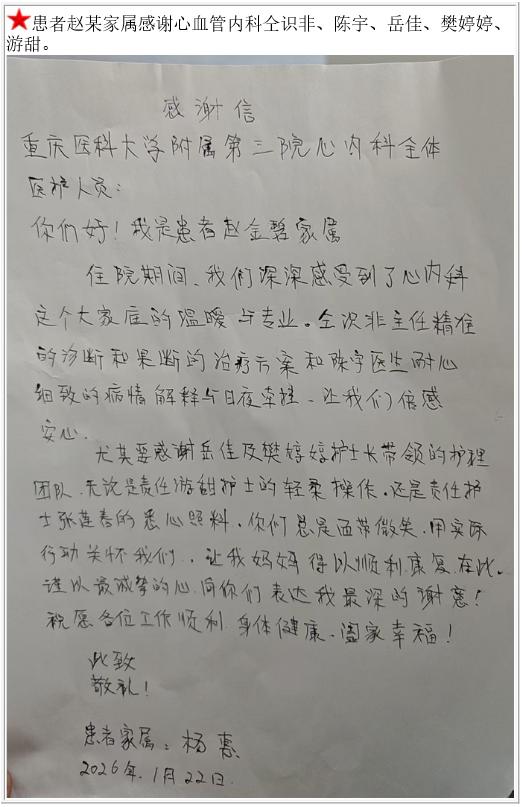 患者赵某家属感谢心血管内科仝识非、陈宇、岳佳、樊婷婷、
游甜。
感谢信
重庆医科大学附属第三院心内科全体
医护人员：
你们好！我是患者赵金碧家属
住院期间、我们深深感受到了心内科
这个大家庭的温暖与专业。仝次非主任精准
的诊断和果断的治疗方案和陈宇医生耐心
细致的病情解释与日夜牵挂、让我们倍感
安心.
尤其要感谢岳佳及樊婷婷护士长带领的护理
团队.无论是责任游甜护士的轻柔操作.还是责任护
士张莲春的悉心照料.你们总是面带微笑.用实际
行动关怀我们.让我妈妈得以顺利康复.在此.
谨以最诚挚的心.向你们表达我最深的谢意！
祝愿各位工作顺利.身体健康、阖家幸福！
此致
敬礼！
患者家属：杨惠
2026年.1月22日.